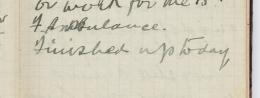 or work for me is
F Ambulance.
Finished up today